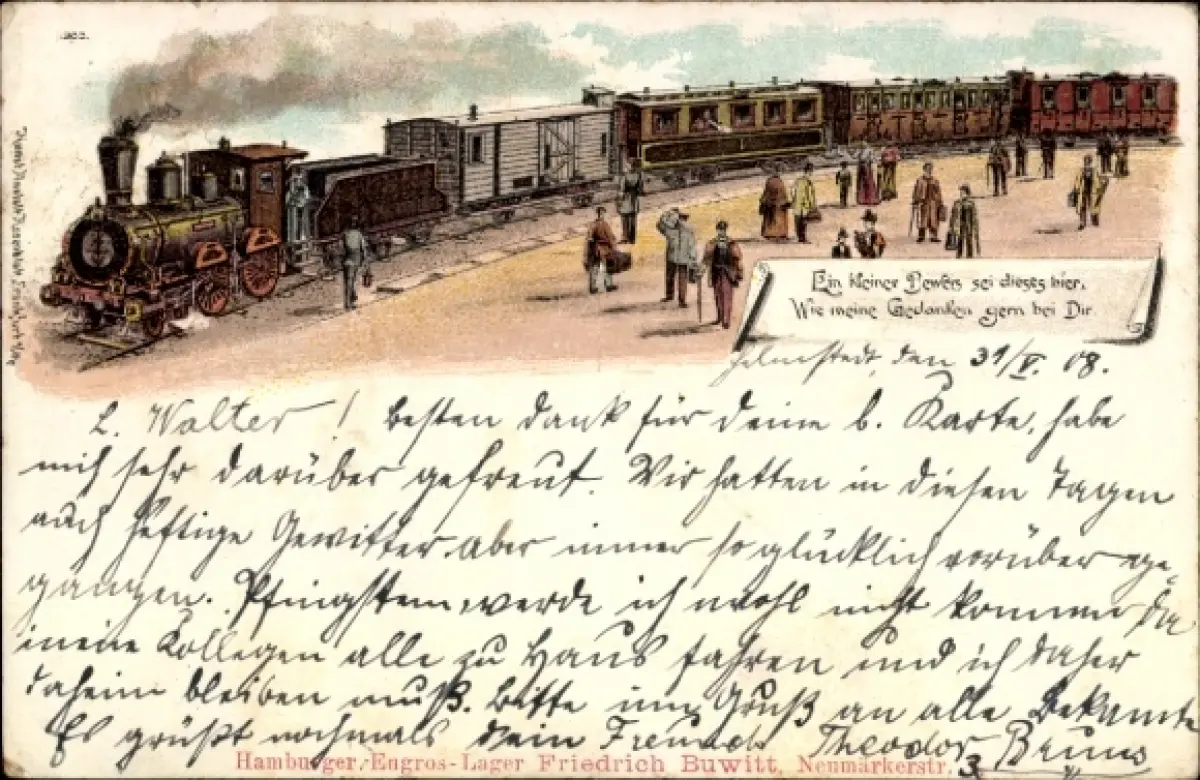 Ein kleiner Beweis sei dieses hier,
Wie meine Gedanken gern bei Dir.
Helmstedt, den 31/V. 08.
L. Walter! Besten Dank für deine l. Karte, habe
mich sehr darüber gefreut. Wir hatten in diesen Tagen
auch heftige Gewitter aber immer so glücklich vorüber ge-
gangen. Pfingsten werde ich wohl nicht kommen da
meine Kollegen alle zu Haus fahren und ich daher
daheim bleiben muß. Bitte um Gruß an alle Bekannte
Es grüßt nochmals dein Freund Theodor Bruns
Hamburger Engros-Lager Friedrich Buwitt, Neumärkerstr. 3